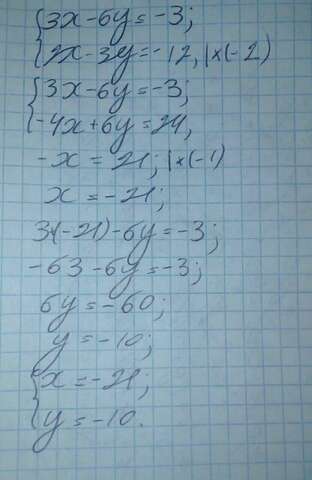 {3x-6y=-3;
2x-3y=-12, |×(-2)
{3x-6y=-3;
-4x+6y=24,
-x=21; |×(-1)
x=-21;
3·(-21)-6y=-3;
-63-6y=-3;
6y=-60;
y=-10;
{x=-21;
y=-10.